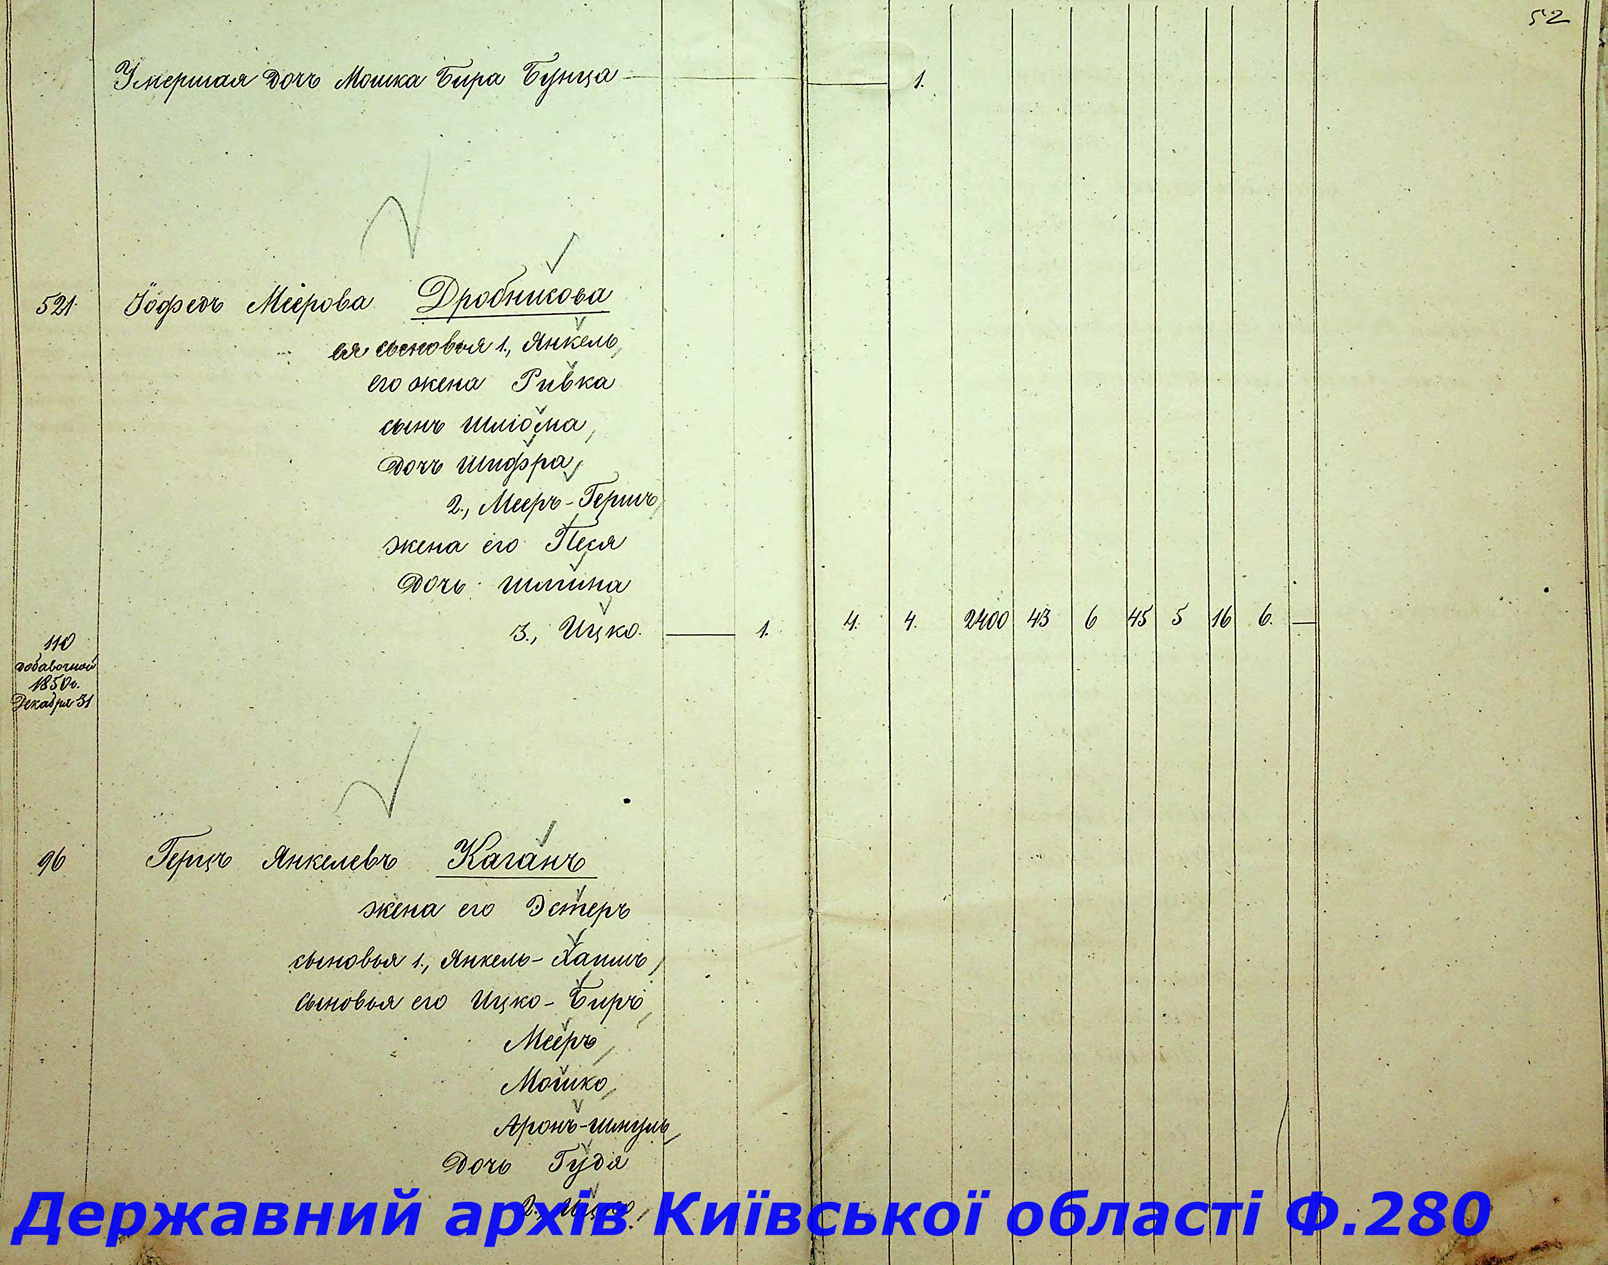 52
Умершая дочь Мошка Бира Бунца 1.
521 Іофедъ Меерова Дробникова
ея сыновья 1., Янкель,
его жена Ривка
сынъ Шліома,
дочь Шифра,
2., Мееръ-Гершъ,
жена его Песя
дочь Шлима
3., Ицко. 1. 4. 4. 2400 43 6 45 5 16 6.
110
добавочной
1850 г.
Декабря 31
96 Герцъ Янкелевъ Каганъ
жена его Эстеръ
сыновья 1., Янкель-Хаимъ,
сыновья его Ицко-Биръ,
Мееръ,
Мошко,
Аронъ-Шмуль,
Дочь Гудя
2., Ицко,
Державний архів Київської області Ф.280